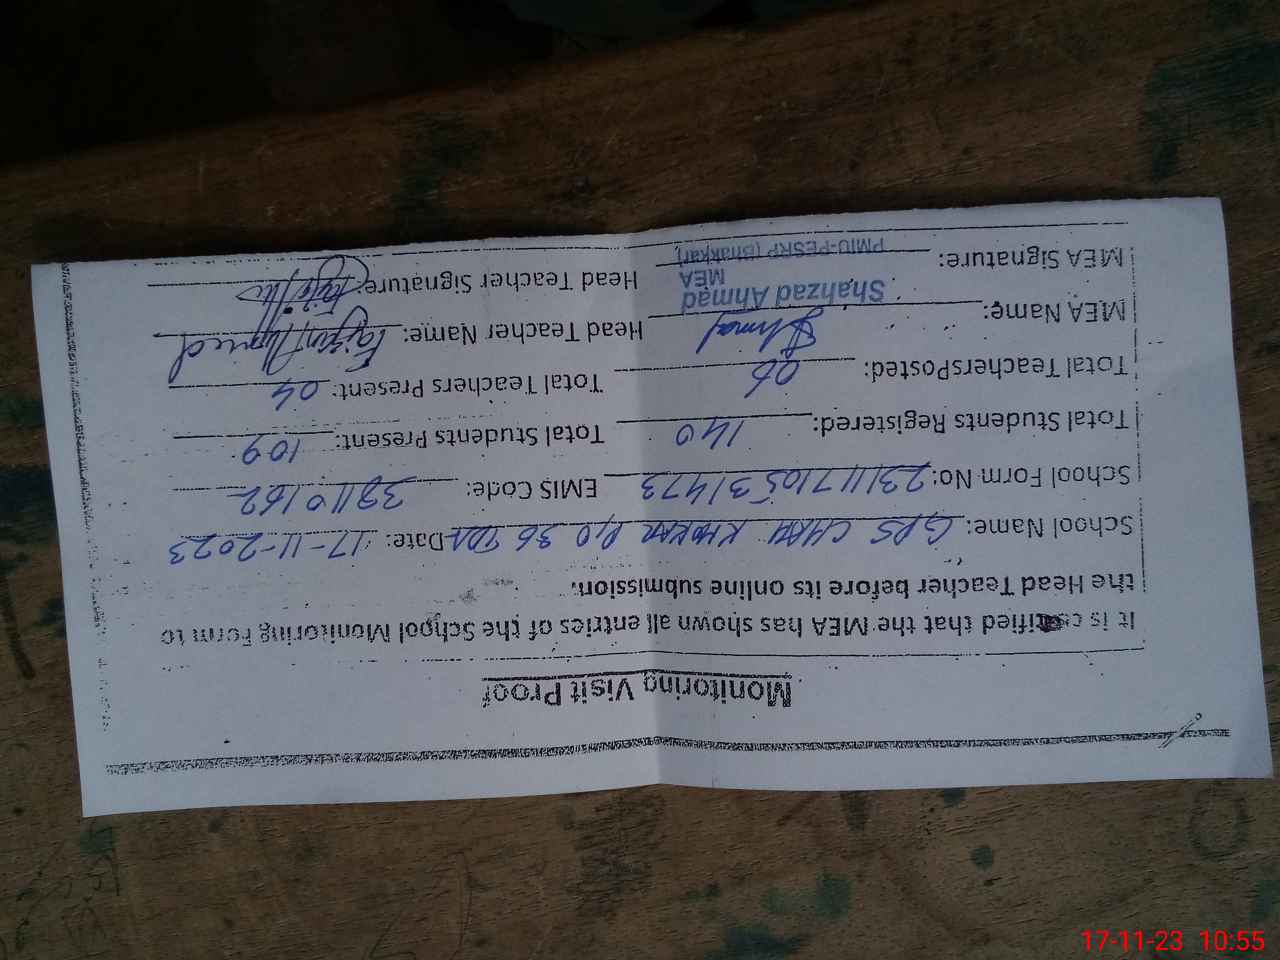 Monitoring Visit Proof
It is certified that the MEA has shown all entries of the School Monitoring Form to
the Head Teacher before its online submission.
School Name: GPS CHAH KHOKAR P/O 36 TDA Date: 17-11-2023
School Form No: 23111710531473 EMIS Code: 38110162
Total Students Registered: 140 Total Students Present: 109
Total TeachersPosted: 06 Total Teachers Present: 04
MEA Name: Head Teacher Name:
Shahzad Ahmad
MEA
PMIU-PESRP (Bhakkar)
MEA Signature: Head Teacher Signature:
17-11-23 10:55